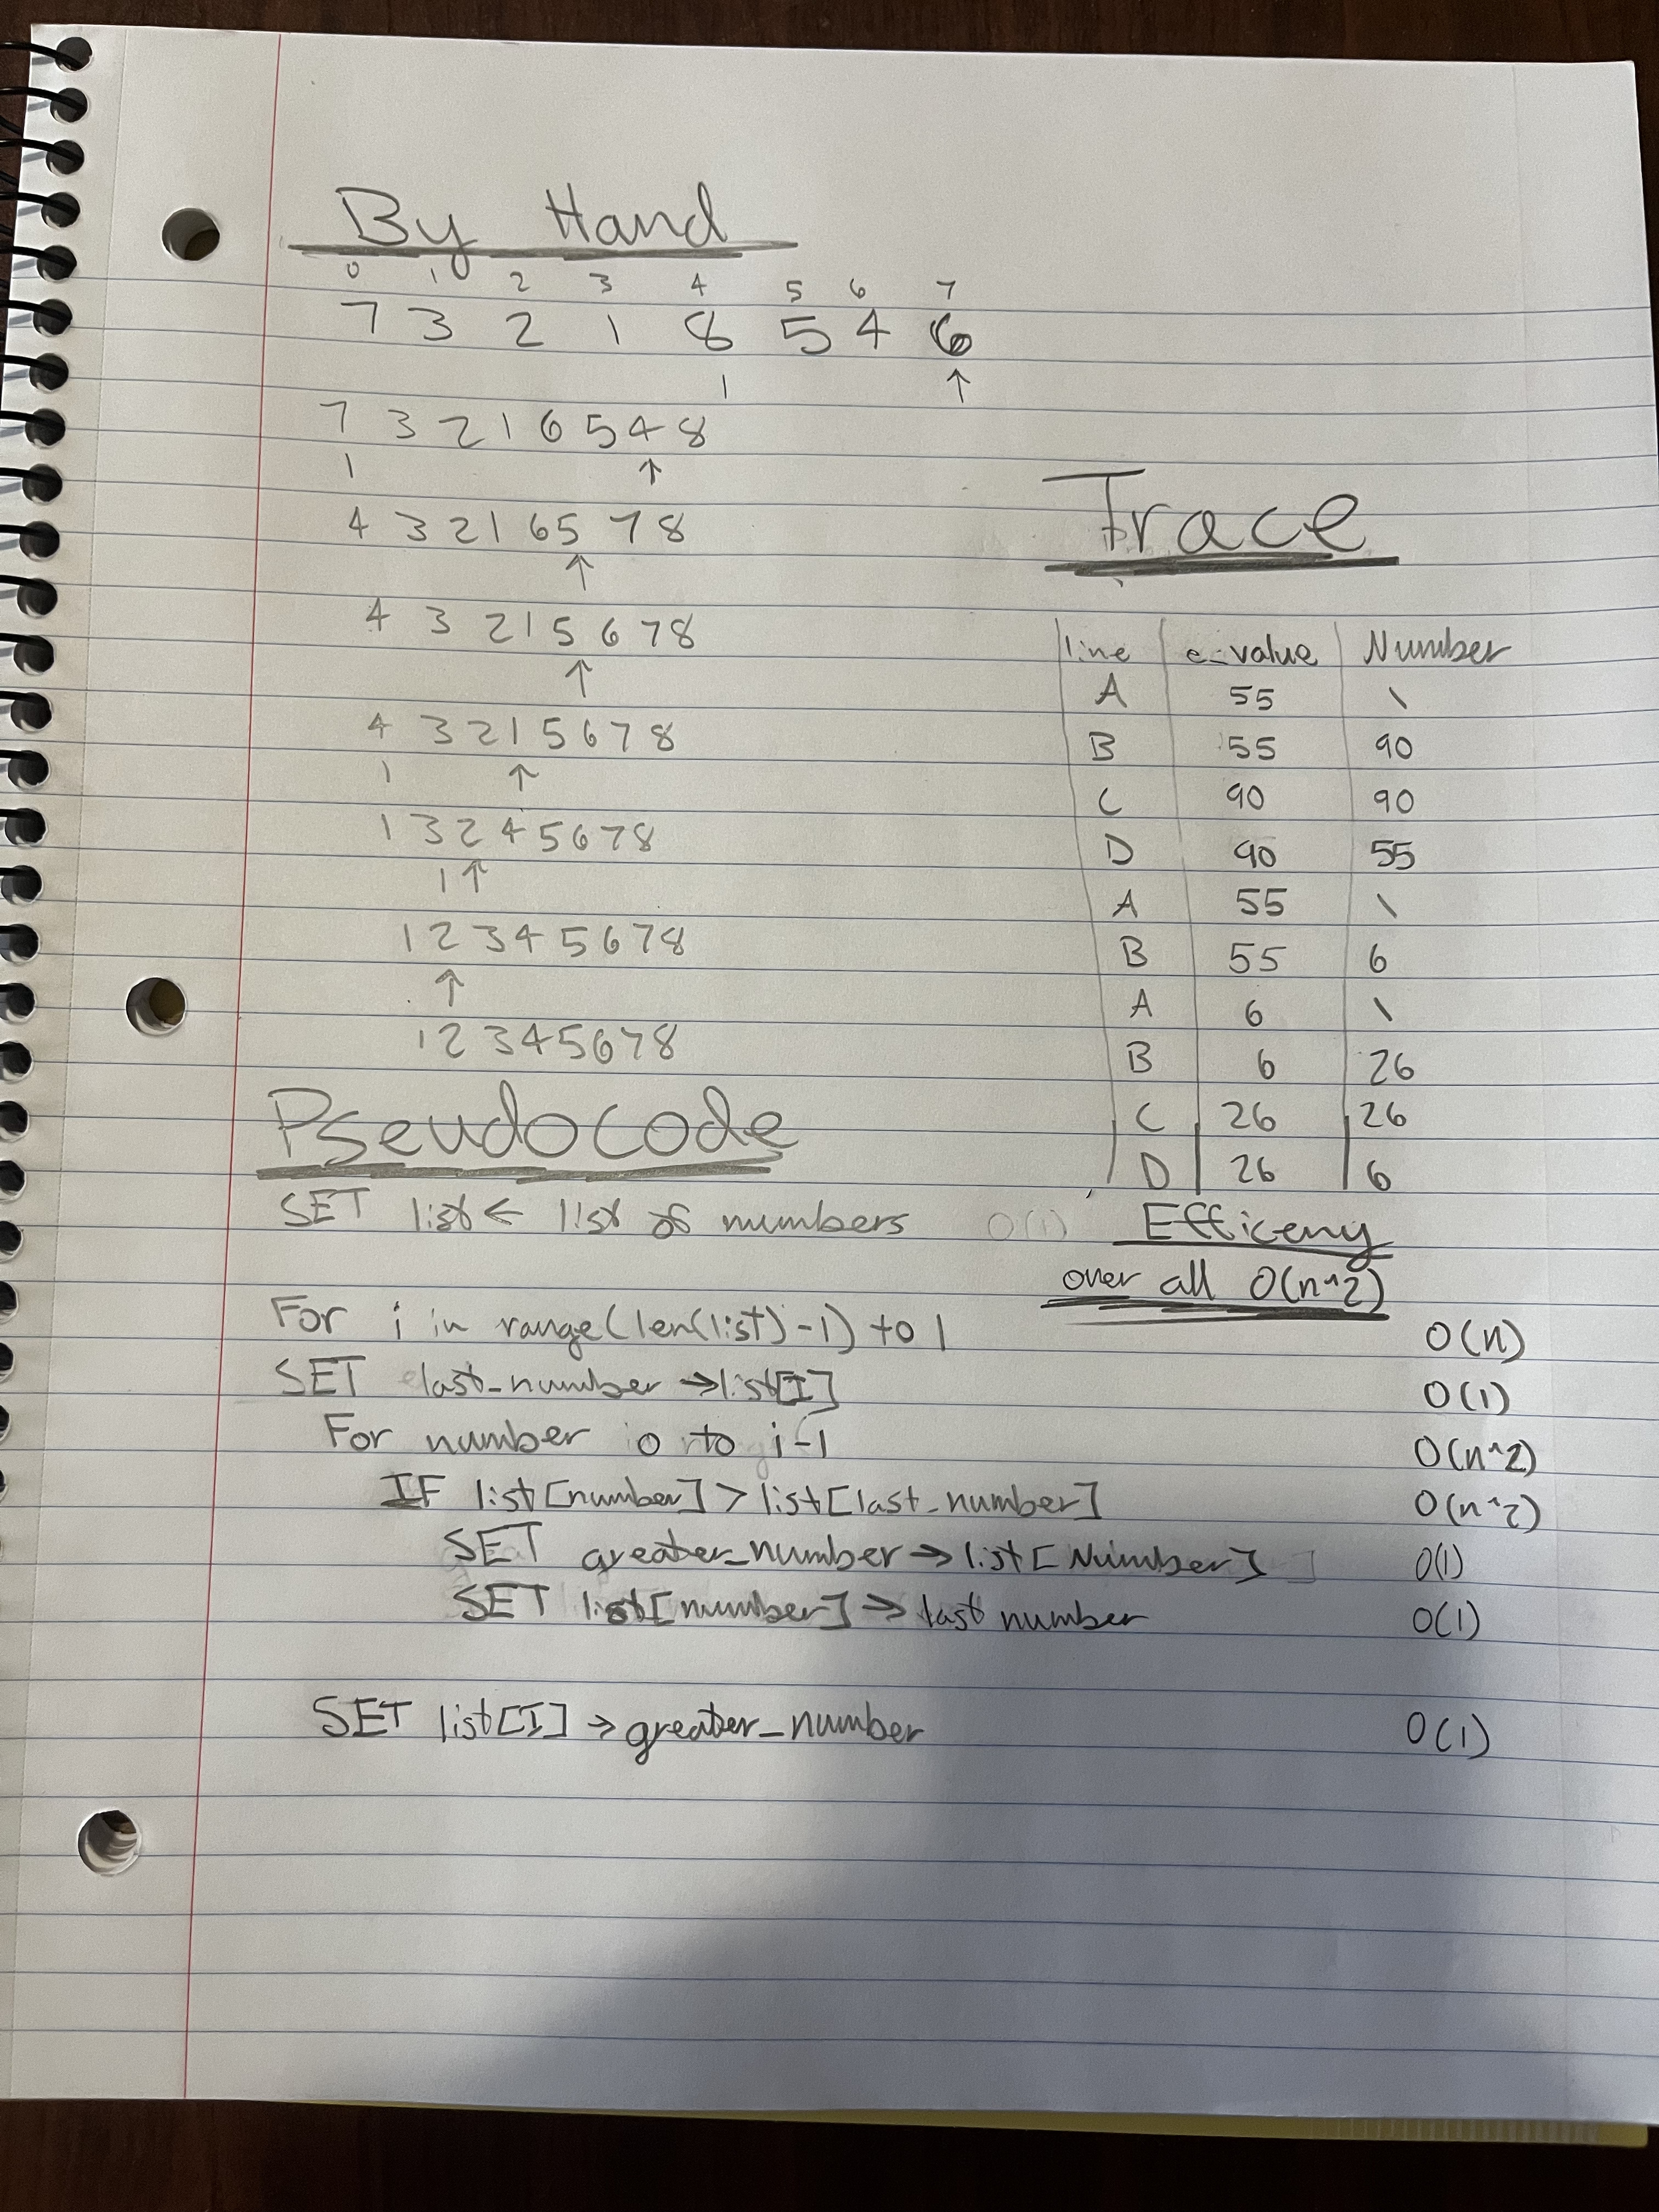 By Hand
0 1 2 3 4 5 6 7
7 3 2 1 8 5 4 6
| ↑
7 3 2 1 6 5 4 8
| ↑
4 3 2 1 6 5 7 8
↑
4 3 2 1 5 6 7 8
↑
4 3 2 1 5 6 7 8
| ↑
1 3 2 4 5 6 7 8
| ↑
1 2 3 4 5 6 7 8
↑
1 2 3 4 5 6 7 8
Trace
line e-value Number
A 55 \
B 55 90
C 90 90
D 90 55
A 55 \
B 55 6
A 6 \
B 6 26
C 26 26
D 26 6
Pseudocode
SET list ← list of numbers O(1)
Efficeny
over all O(n^2)
For i in range(len(list)-1) to 1 O(n)
SET last_number → list[I] O(1)
For number 0 to i-1 O(n^2)
IF list[number] > list[last_number] O(n^2)
SET greater_number → list[Number] O(1)
SET list[number] → last number O(1)
SET list[I] → greater_number O(1)